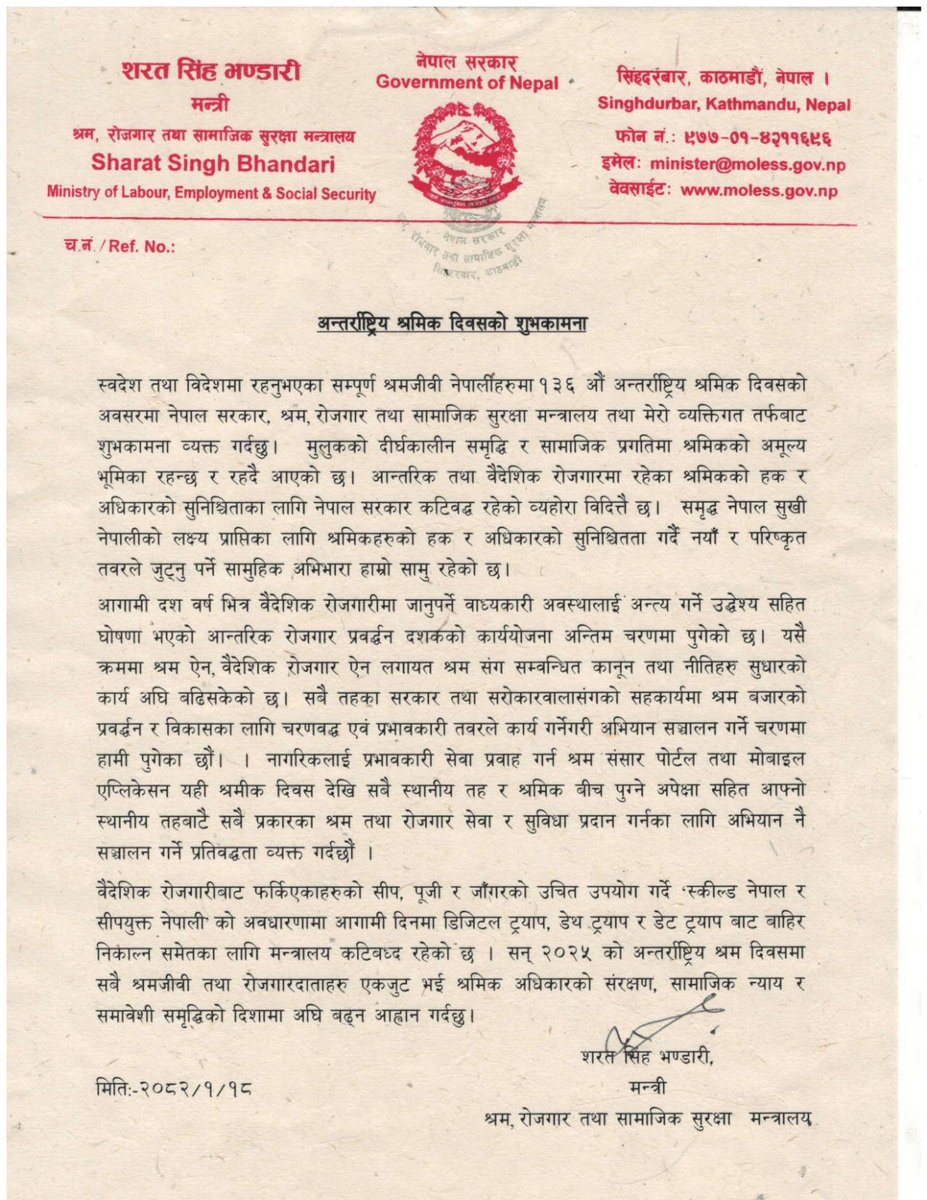 शरत सिंह भण्डारी
मन्त्री
श्रम, रोजगार तथा सामाजिक सुरक्षा मन्त्रालय
Sharat Singh Bhandari
Ministry of Labour, Employment & Social Security
नेपाल सरकार
Government of Nepal
सिंहदरबार, काठमाडौं, नेपाल ।
Singhdurbar, Kathmandu, Nepal
फोन नं.: ९७७-०१-४२११६९६
इमेल: minister@moless.gov.np
वेवसाईट: www.moless.gov.np
नेपाल सरकार
रोजगार तथा सामाजिक सुरक्षा मन्त्रालय
सिंहदरबार, काठमाडौं
च.नं./Ref. No.:
अन्तर्राष्ट्रिय श्रमिक दिवसको शुभकामना
स्वदेश तथा विदेशमा रहनुभएका सम्पूर्ण श्रमजीवी नेपालीहरुमा १३६ औं अन्तर्राष्ट्रिय श्रमिक दिवसको
अवसरमा नेपाल सरकार, श्रम, रोजगार तथा सामाजिक सुरक्षा मन्त्रालय तथा मेरो व्यक्तिगत तर्फबाट
शुभकामना व्यक्त गर्दछु। मुलुकको दीर्घकालीन समृद्धि र सामाजिक प्रगतिमा श्रमिकको अमूल्य
भूमिका रहन्छ र रहदै आएको छ। आन्तरिक तथा वैदेशिक रोजगारमा रहेका श्रमिकको हक र
अधिकारको सुनिश्चिताका लागि नेपाल सरकार कटिवद्ध रहेको व्यहोरा विदित्तै छ। समृद्ध नेपाल सुखी
नेपालीको लक्ष्य प्राप्तिका लागि श्रमिकहरुको हक र अधिकारको सुनिश्चितता गर्दै नयाँ र परिष्कृत
तवरले जुट्नु पर्ने सामुहिक अभिभारा हाम्रो सामु रहेको छ।
आगामी दश वर्ष भित्र वैदेशिक रोजगारीमा जानुपर्ने वाध्यकारी अवस्थालाई अन्त्य गर्ने उद्धेश्य सहित
घोषणा भएको आन्तरिक रोजगार प्रवर्द्धन दशकको कार्ययोजना अन्तिम चरणमा पुगेको छ। यसै
क्रममा श्रम ऐन, वैदेशिक रोजगार ऐन लगायत श्रम संग सम्वन्धित कानून तथा नीतिहरु सुधारको
कार्य अघि बढिसकेको छ। सबै तहका सरकार तथा सरोकारवालासंगको सहकार्यमा श्रम बजारको
प्रवर्द्धन र विकासका लागि चरणवद्ध एवं प्रभावकारी तवरले कार्य गर्नेगरी अभियान सञ्चालन गर्ने चरणमा
हामी पुगेका छौं। । नागरिकलाई प्रभावकारी सेवा प्रवाह गर्न श्रम संसार पोर्टल तथा मोबाइल
एप्लिकेसन यही श्रमीक दिवस देखि सबै स्थानीय तह र श्रमिक बीच पुग्ने अपेक्षा सहित आफ्नो
स्थानीय तहबाटै सबै प्रकारका श्रम तथा रोजगार सेवा र सुविधा प्रदान गर्नका लागि अभियान नै
सञ्चालन गर्ने प्रतिवद्धता व्यक्त गर्दछौं ।
वैदेशिक रोजगारीबाट फर्किएकाहरुको सीप, पूजी र जाँगरको उचित उपयोग गर्दे 'स्कील्ड नेपाल र
सीपयुक्त नेपाली' को अवधारणामा आगामी दिनमा डिजिटल ट्र्याप, डेथ ट्र्याप र डेट ट्र्याप बाट बाहिर
निकाल्न समेतका लागि मन्त्रालय कटिबध्द रहेको छ । सन् २०२५ को अन्तर्राष्ट्रिय श्रम दिवसमा
सवै श्रमजीवी तथा रोजगारदाताहरु एकजुट भई श्रमिक अधिकारको संरक्षण, सामाजिक न्याय र
समावेशी समृद्धिको दिशामा अघि बढ्न आह्वान गर्दछु।
शरत सिंह भण्डारी,
मिति:-२०८२/१/१८
मन्त्री
श्रम, रोजगार तथा सामाजिक सुरक्षा मन्त्रालय